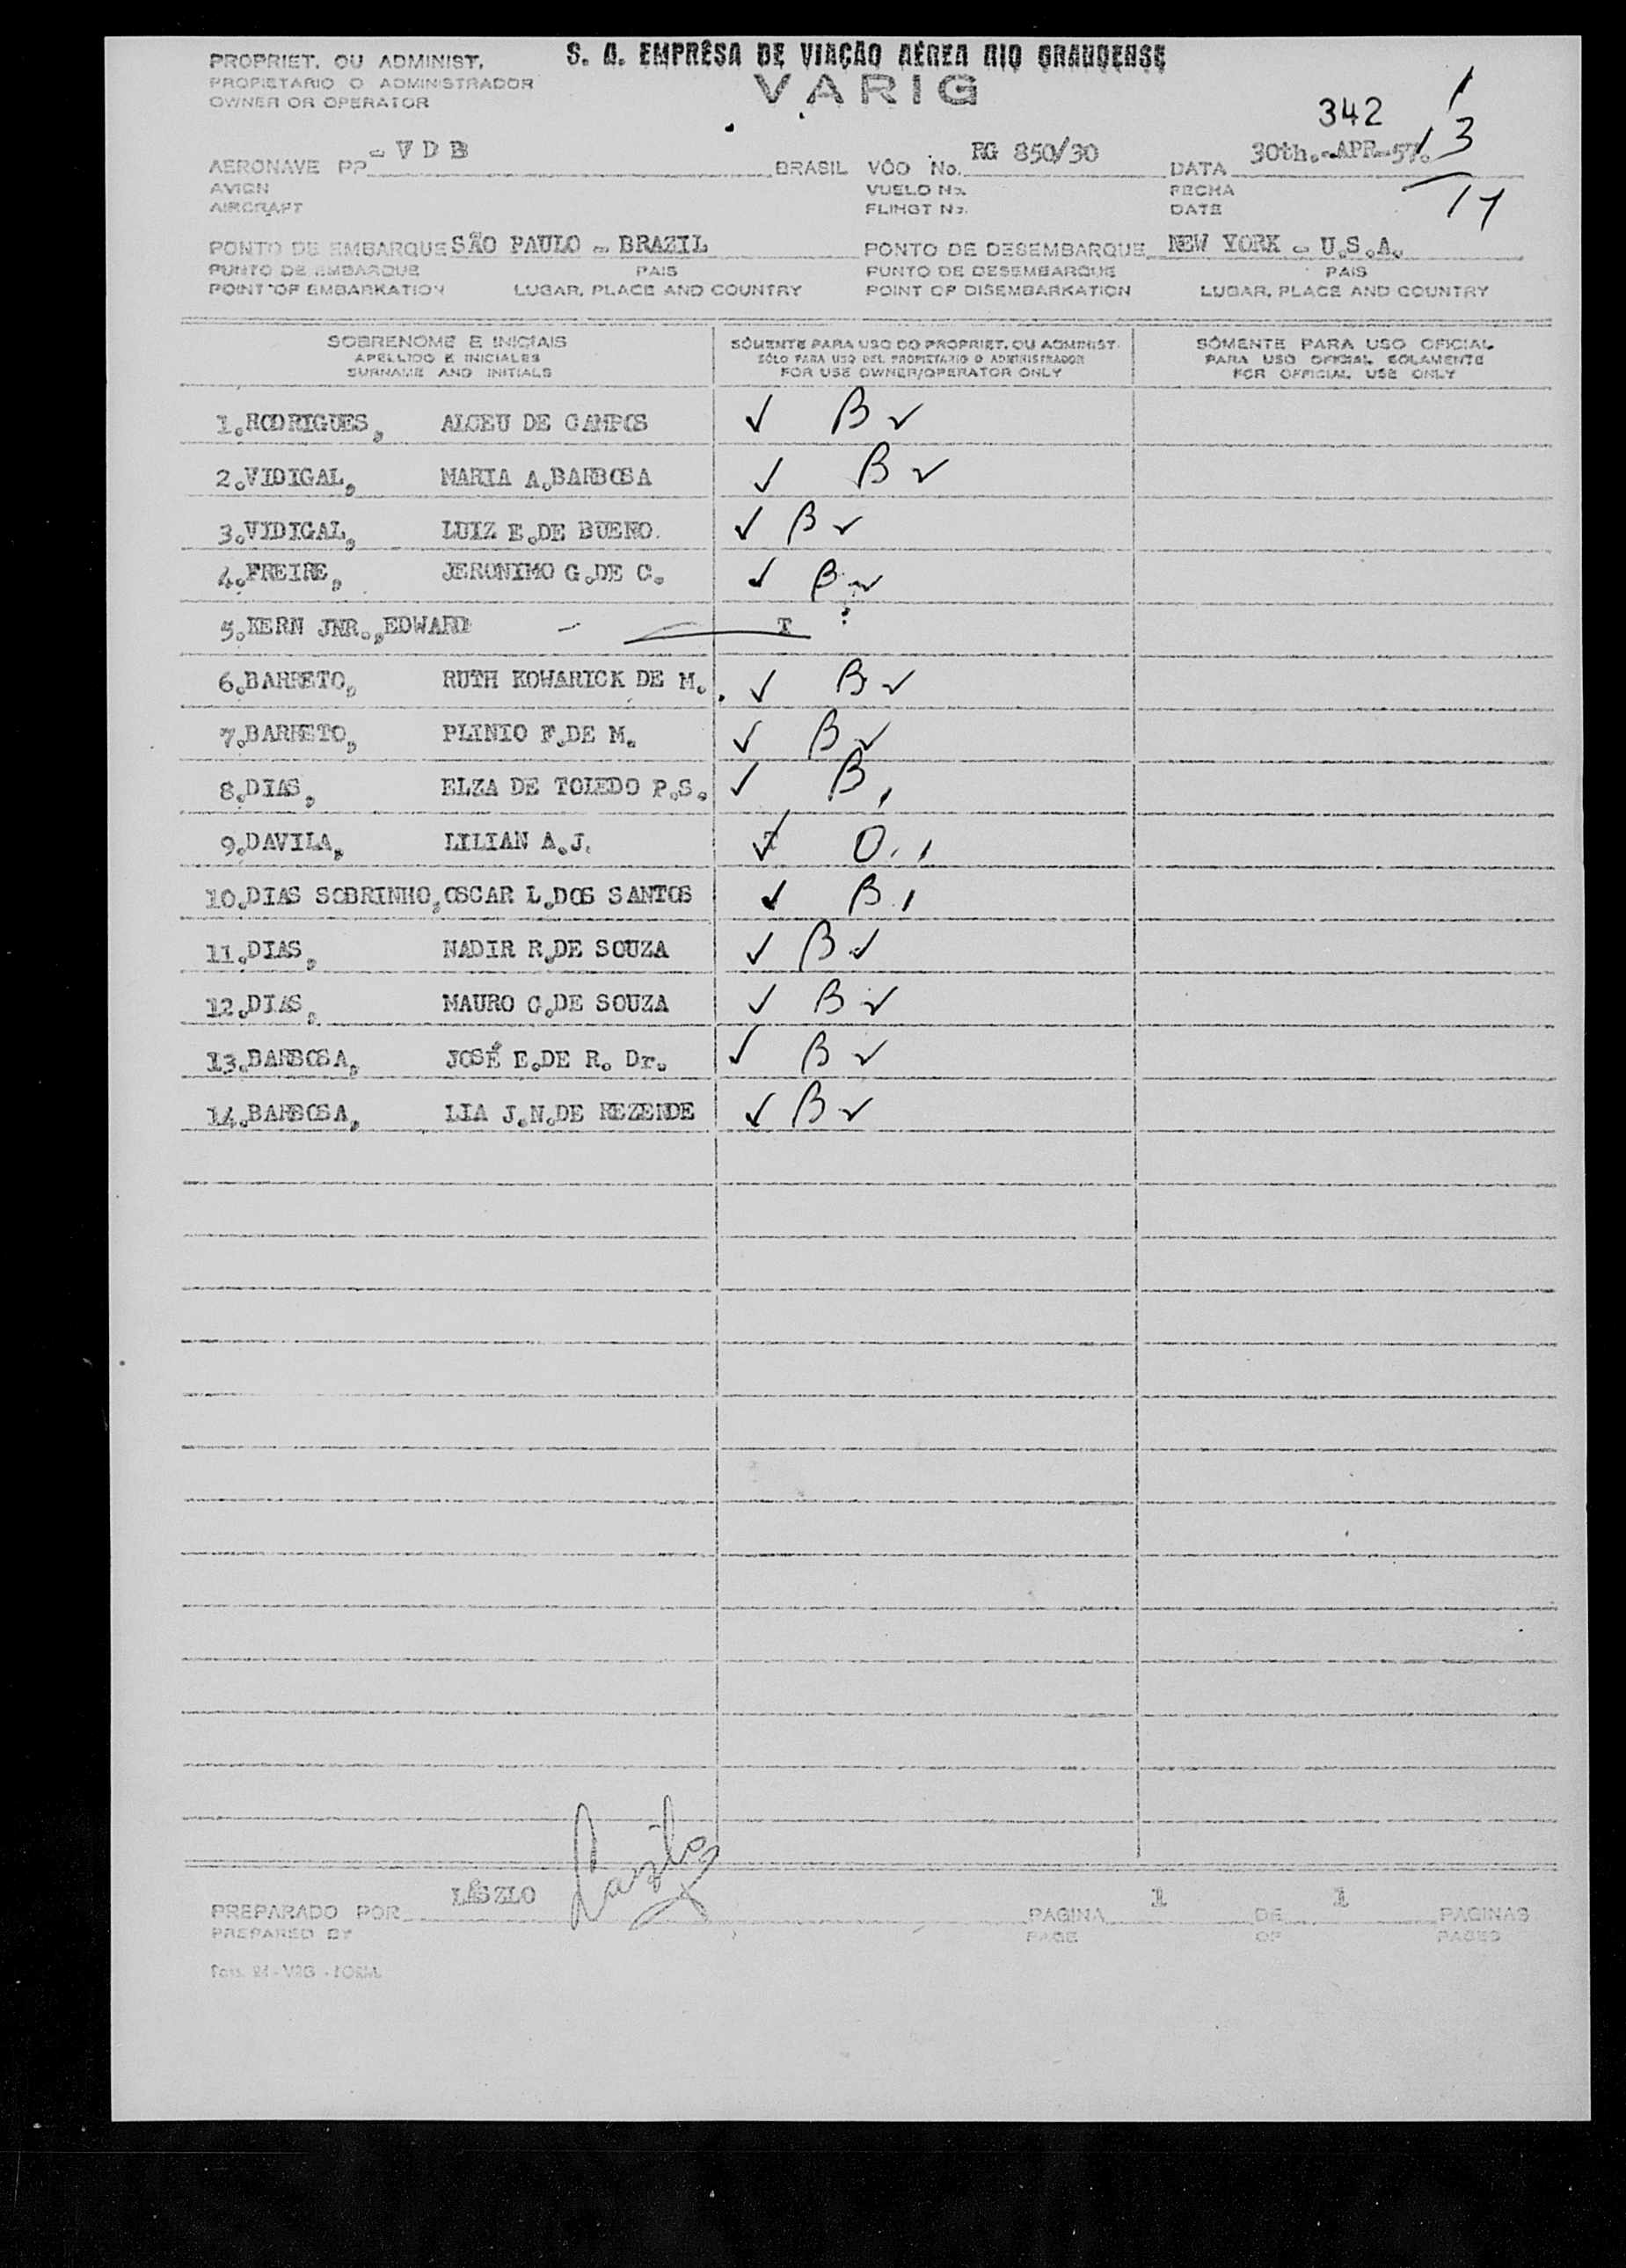 S. A. EMPRÊSA DE VIAÇÃO AÉREA RIO GRANDENSE
VARIG
PROPRIET. OU ADMINIST.
PROPIETARIO O ADMINISTRADOR
OWNER OR OPERATOR
342
1
13
14
AERONAVE PP - V D B BRASIL VÔO No. RG 850/30 DATA 30th.-APR-57.
AVION VUELO No. FECHA
AIRCRAFT FLIHGT No. DATE
PONTO DE EMBARQUE SÃO PAULO - BRAZIL PONTO DE DESEMBARQUE NEW YORK - U.S.A.
PUNTO DE EMBARQUE PAIS PUNTO DE DESEMBARQUE PAIS
POINT OF EMBARKATION LUGAR, PLACE AND COUNTRY POINT OF DISEMBARKATION LUGAR, PLACE AND COUNTRY
SOBRENOME E INICIAIS SÓMENTE PARA USO DO PROPRIET. OU ADMINIST. SÓMENTE PARA USO OFICIAL
APELLIDO E INICIALES SÓLO PARA USO DEL PROPIETARIO O ADMINISTRADOR PARA USO OFICIAL SOLAMENTE
SURNAME AND INITIALS FOR USE OWNER/OPERATOR ONLY FOR OFFICIAL USE ONLY
1.RODRIGUES, ALCEU DE CAMPOS ✓ B ✓
2.VIDIGAL, MARIA A.BARBOSA ✓ B ✓
3.VIDIGAL, LUIZ E.DE BUENO. ✓ B ✓
4.FREIRE, JERONIMO G.DE C. ✓ B ✓
5.KERN JNR.,EDWARD - T
6.BARRETO, RUTH KOWARICK DE M. ✓ B ✓
7.BARRETO, PLINIO F.DE M. ✓ B ✓
8.DIAS, ELZA DE TOLEDO P.S. ✓ B
9.DAVILA, LILIAN A.J. T ✓ O
10.DIAS SOBRINHO,OSCAR L.DOS SANTOS ✓ B
11.DIAS, NADIR R.DE SOUZA ✓ B ✓
12.DIAS, MAURO C.DE SOUZA ✓ B ✓
13.BARBOSA, JOSÉ E.DE R. Dr. ✓ B ✓
14.BARBOSA, LIA J.N.DE REZENDE ✓ B ✓
PREPARADO POR LÁSZLO Laszlo PAGINA 1 DE 1 PAGINAS
PREPARED BY PAGE OF PAGES